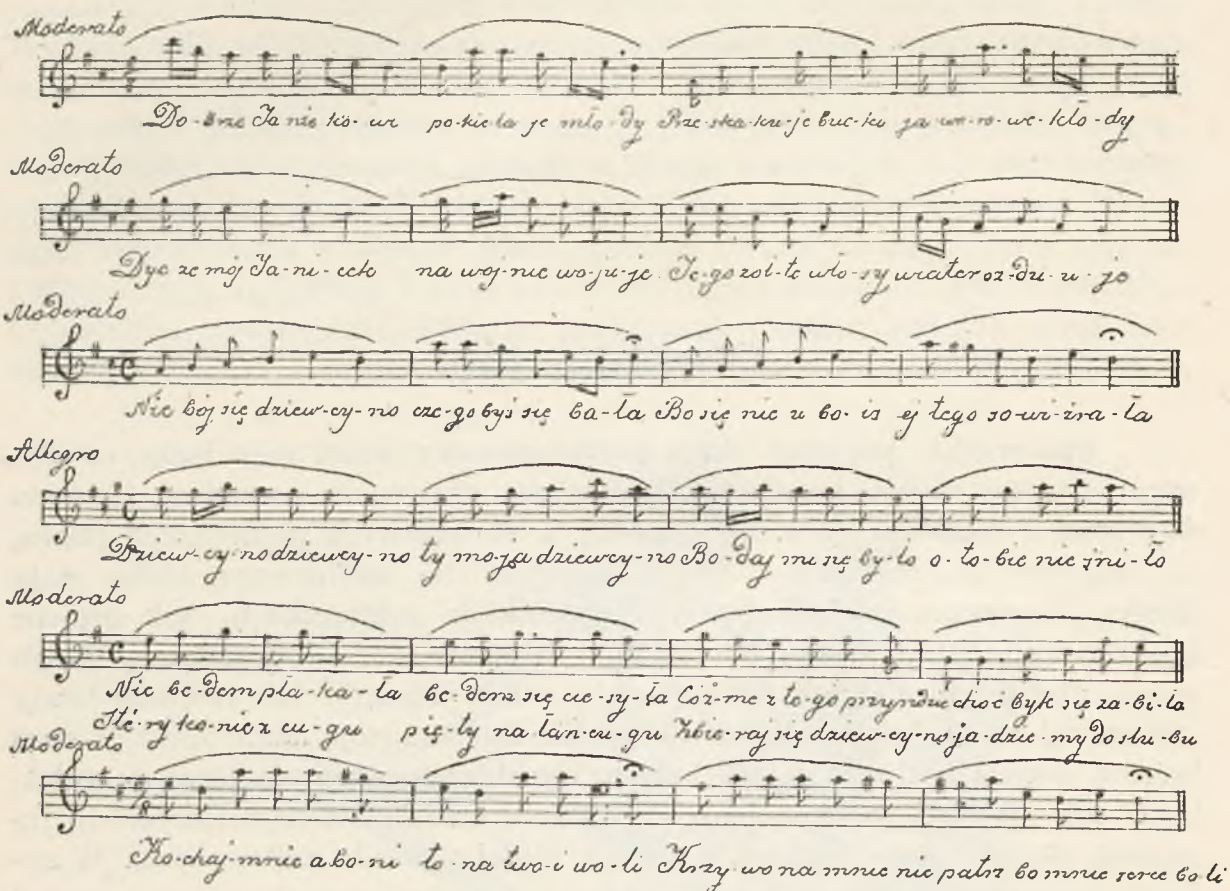 Moderato
Do-brze Ja nie ko-wi po-kie la je mło-dy Prze-ska-ku-je buc-ki ja-wo-ro-we-kło-dy
Moderato
Dyć ze mój Ja-ni-cek na woj-nie wo-ju-je Je-go zoł-te wło-sy wiater oz-du-u-je
Moderato
Nie bój się dziew-cy-no cze-go byś się ba-ła Bo się nie u bo-is ej tego so-wi-zra-ła
Allegro
Dziew-cy-no dziewcy-no ty mo-ja dziewcy-no Bo-daj mi się by-ło o-to-bie nie śni-ło
Moderato
Nie be-dem pła-ka-ła be-dem się cie-sy-ła Cóż-me z to-go przyńdzie choć byk się za-bi-ła
Śté-ry ko-nie z cu-gu pię-ty na łań-cu-gu Zbie-raj się dziew-cy-no ja-dzie-my do ślu-bu
Moderato
Ko-chaj-mnie a bo-ni to-na two-i wo-li Krzy wo na mnie nie patrz bo mnie serce bo-li